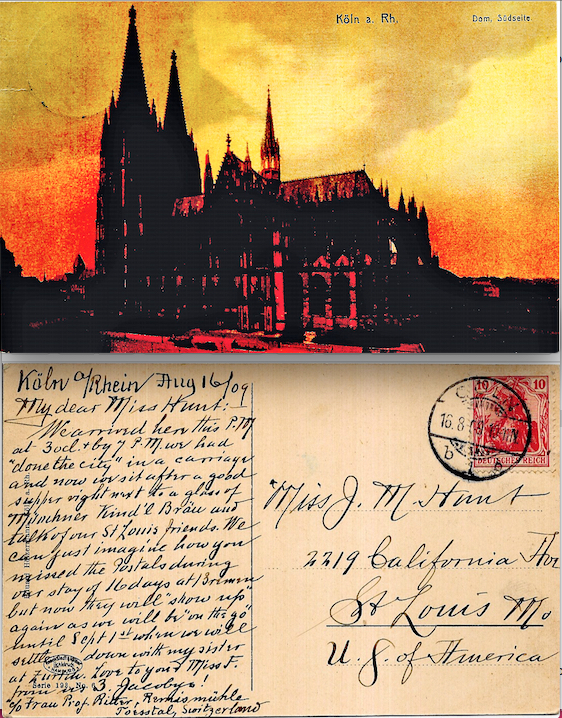 Köln a. Rh,
Dom, Südseite.
Köln a/Rhein Aug 16/09
My dear Miss Hunt:-
We arrived here this P.M
at 3 ocl. + by 7 P.M. we had
"done the city" in a carriage
and now we sit after a good
supper right next to a glass of
Münchner Kind'l Bräu and
talk of our St Louis friends. We
can just imagine how you
missed the Postals during
our stay of 16 days at Bremen
but now they will "show up"
again as we will be "on the go"
until Sept 1st when we will
settle down with my sister
at Zurich. Love to you & Miss F.
from 3. Jacobys!
c/o Frau Prof. Ritter, Remismühle
Toesstal, Switzerland
Serie 193 No.
10 10
DEUTSCHES REICH
16.8.09
b
Miss J. M. Hunt
2219 California
St Louis Mo
U. S. of America